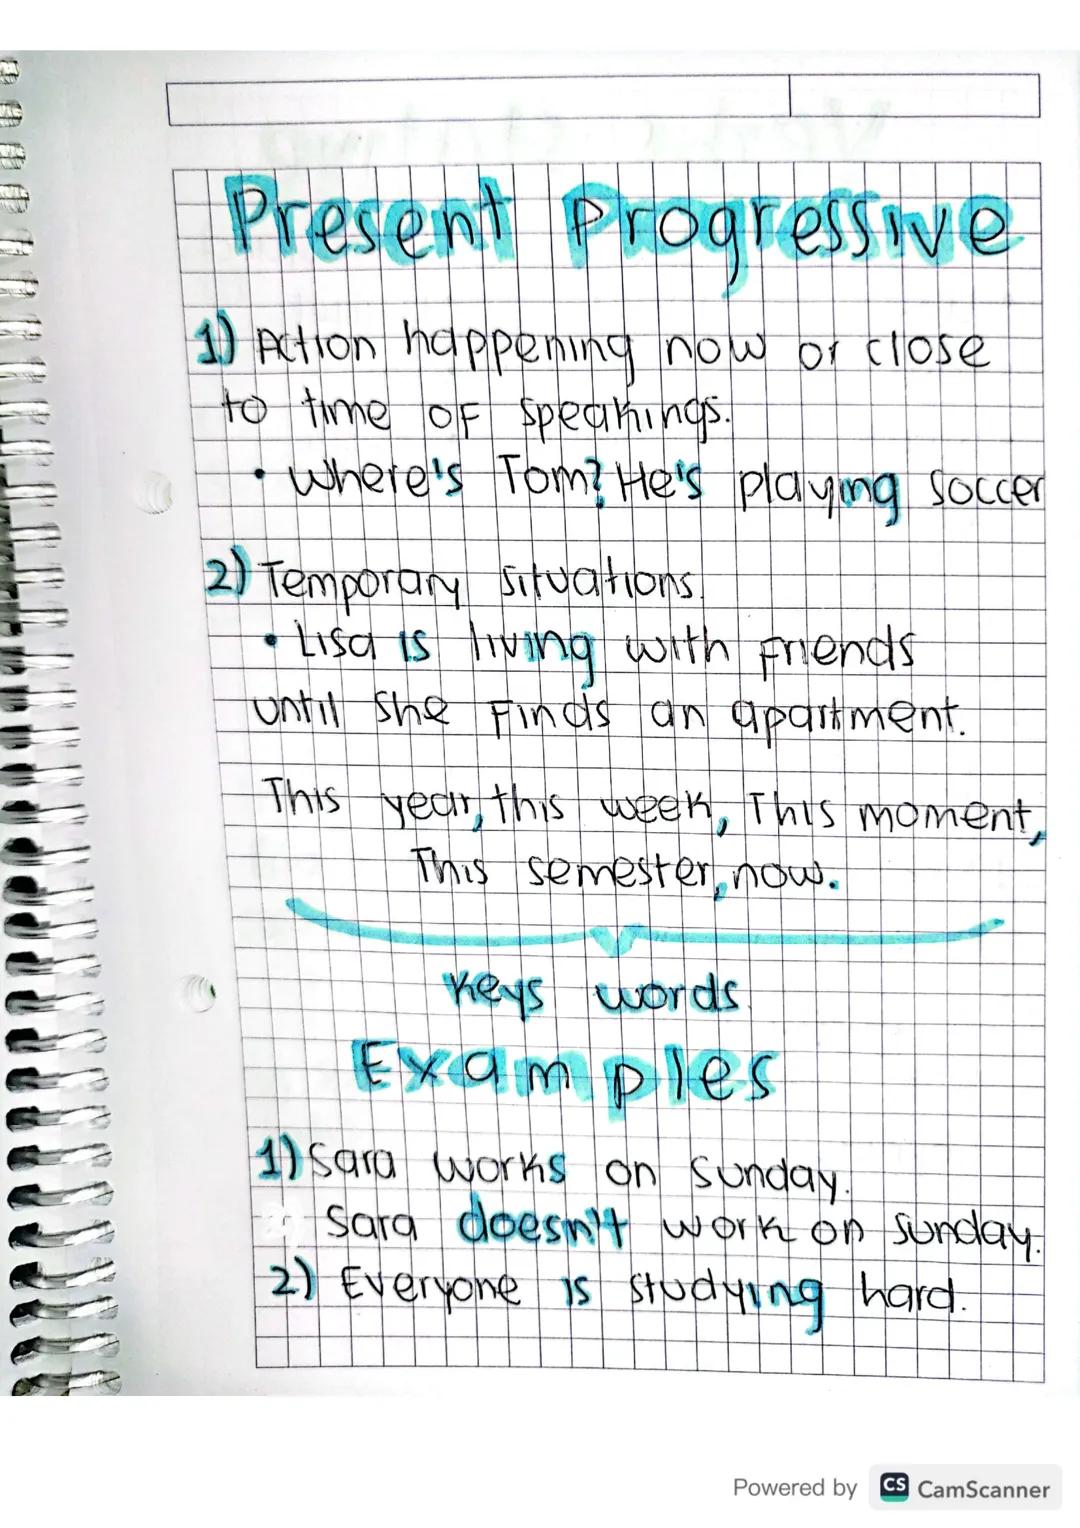 Present Progressive
1) Action happening now or close
to time of speakings.
• Where's Tom? He's playing soccer
2) Temporary situations.
• Lisa is living with friends
until she finds an apartment.
This year, this week, This moment,
This semester, now.
Keys words
Examples
1) Sara works on Sunday.
Sara doesn't work on Sunday.
2) Everyone is studying hard.
Powered by CS CamScanner